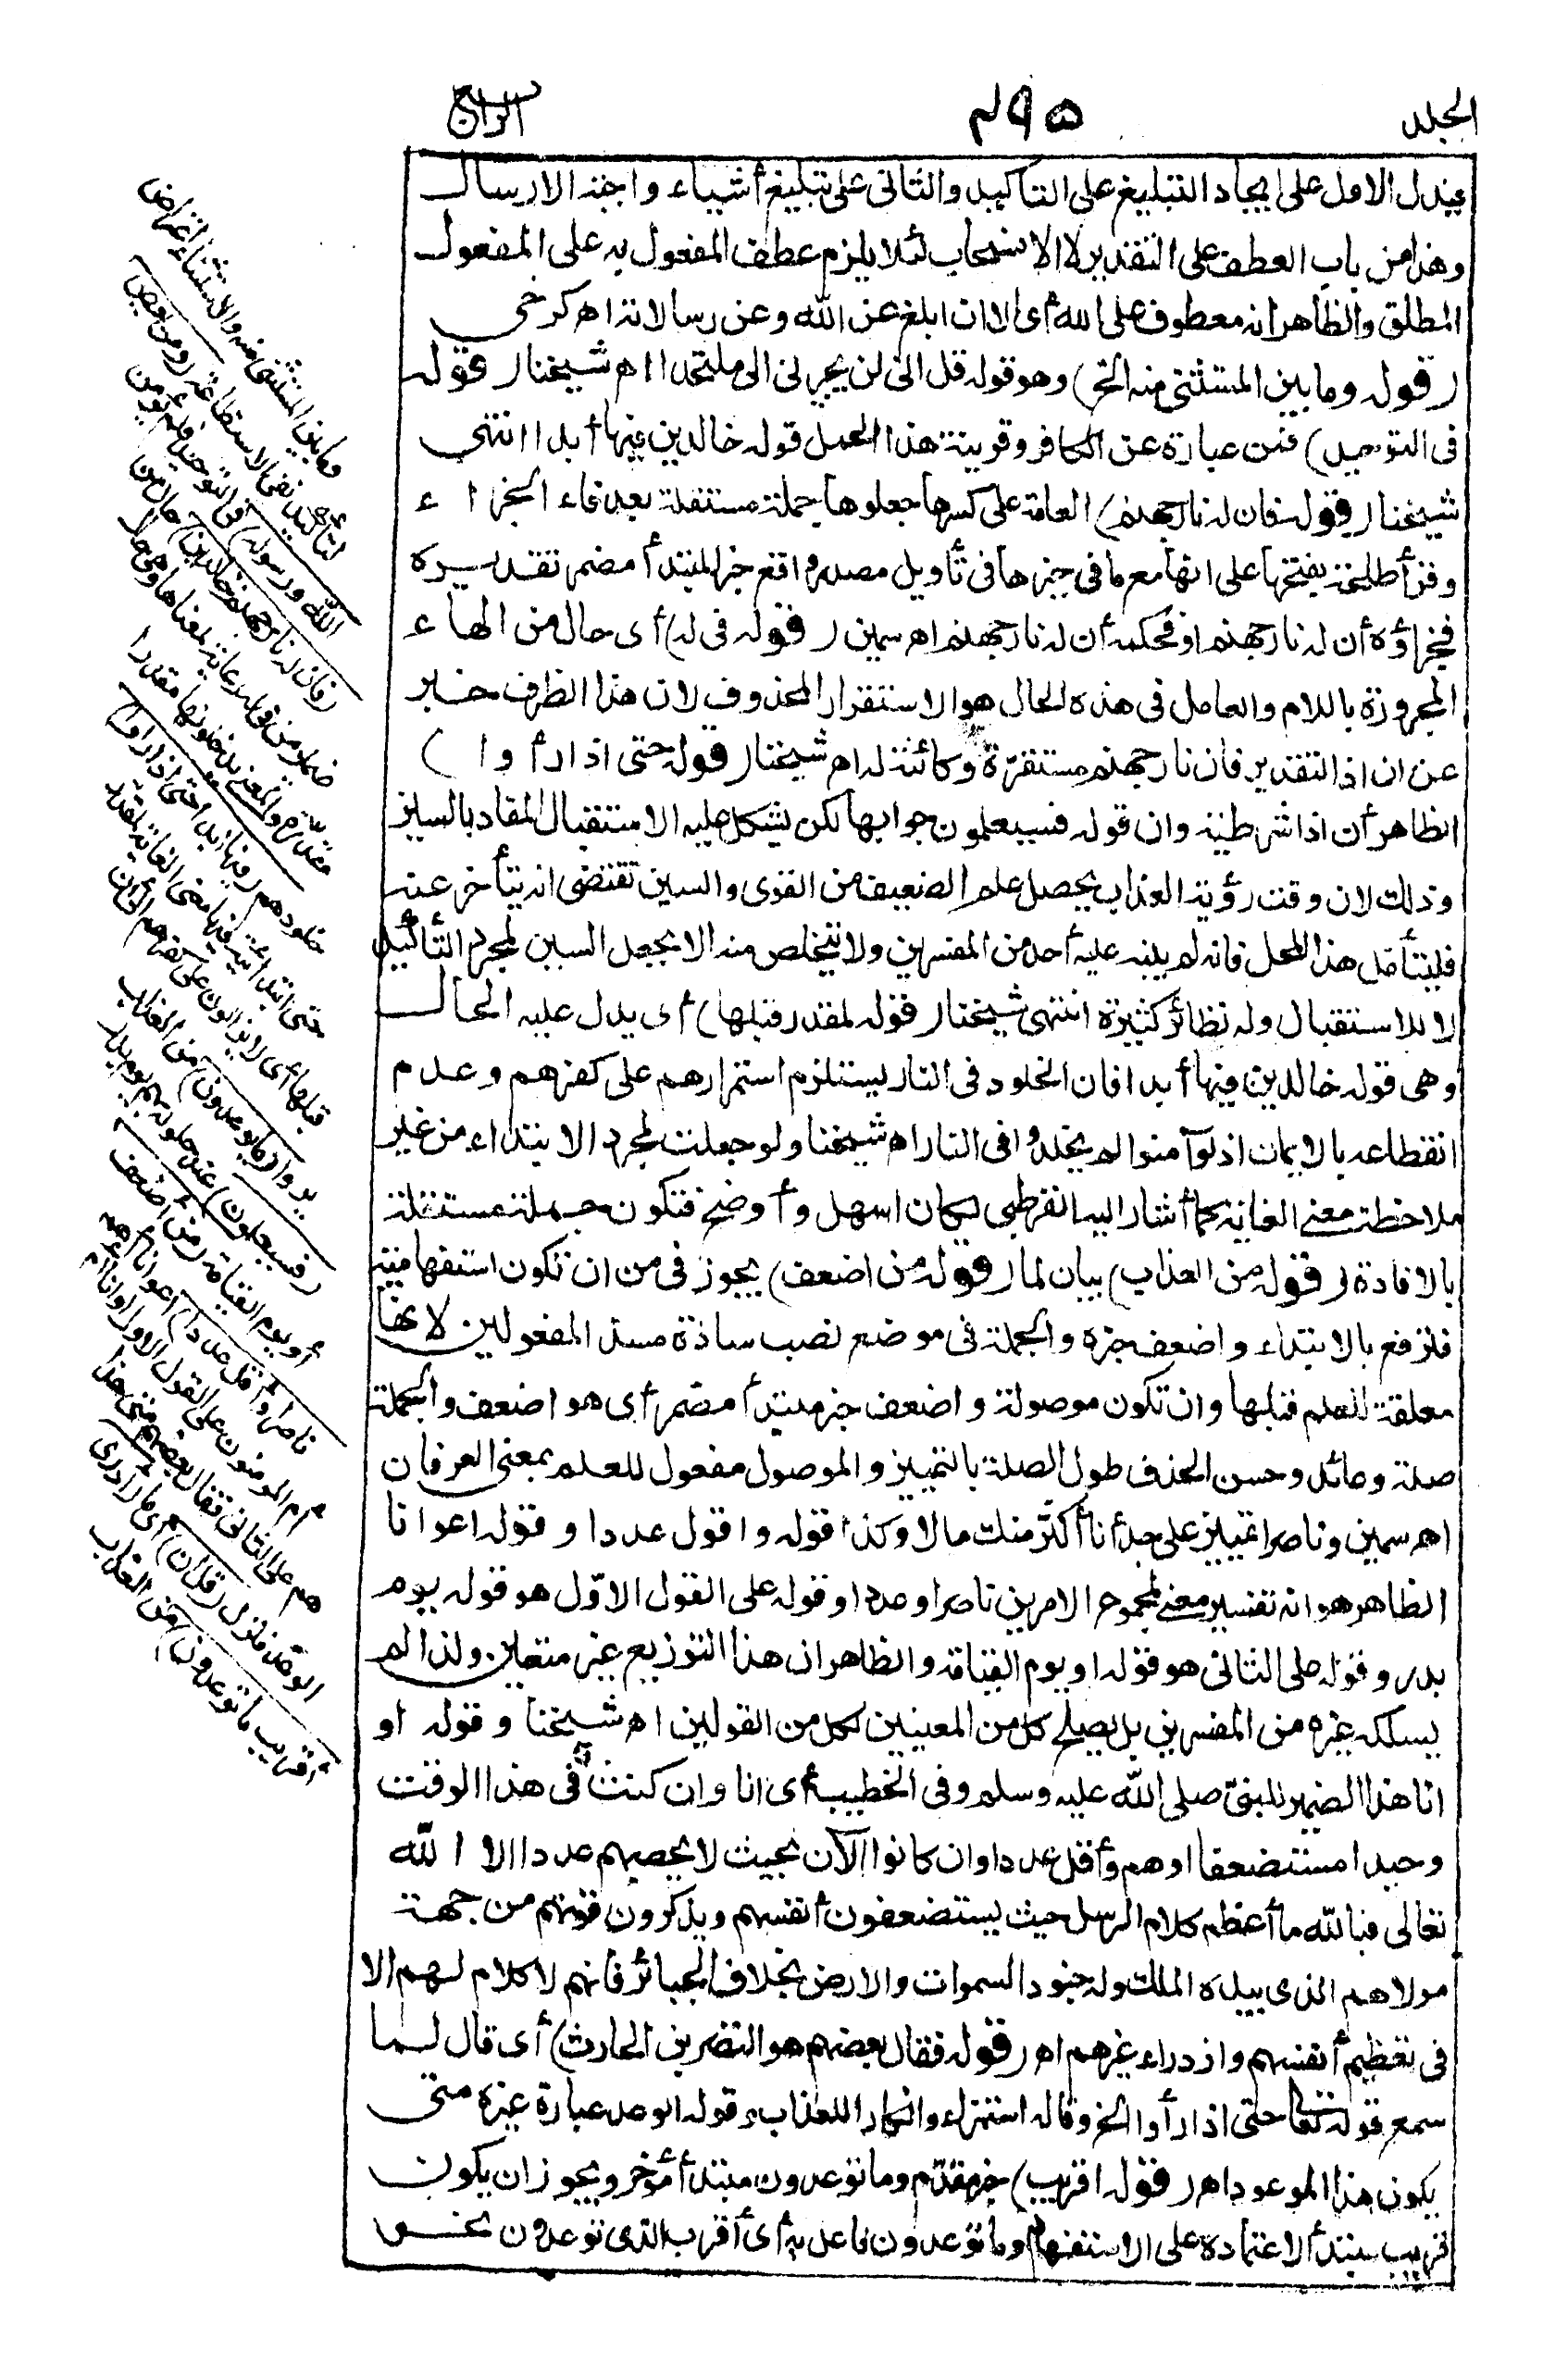 الجلد ٤٩٥ الرابع
فيدل الاول على ايجاد التبليغ على التأكيد والثانى على تبليغ أشياء واجبة الارسال
وهذا من باب العطف على التقدير لا الانسحاب لئلا يلزم عطف المفعول به على المفعول
المطلق والظاهر انه معطوف على الله أى الا ان ابلغ عن الله وعن رسالاته اه كرخى
(قوله وما بين المستثنى منه الخ) وهو قوله قل انى لن يجيرنى الى ملتحدا اه شيخنا (قوله
فى التوحيد) فمن عبارة عن الكافر وقرينة هذا الحمل قوله خالدين فيها أبدا انتهى
شيخنا (قوله فان له نار جهنم) العامة على كسرها جعلوها جملة مستقلة بعد فاء الجزاء
وقرأ طلحة بفتحها على انها مع ما فى حيزها فى تأويل مصدر واقع خبر المبتدأ مضمر تقديره
فجزاؤه أن له نار جهنم او فحكمه أن له نار جهنم اه سمين (قوله فى له) أى حال من الهاء
المجرورة باللام والعامل فى هذه الحال هو الاستقرار المحذوف لان هذا الظرف خبر
عن ان اذ التقدير فان نار جهنم مستقرة وكائنة له اه شيخنا (قوله حتى اذا رأوا)
الظاهر أن اذا شرطية وان قوله فسيعلمون جوابها لكن يشكل عليه الاستقبال المفاد بالسين
وذلك لان وقت رؤية العذاب يحصل علم الضعيف من القوى والسين تقتضى انه يتأخر عنه
فليتأمل هذا المحل فانه لم ينبه عليه أحد من المفسرين ولا يتخلص منه الا بجعل السين لمجرد التأكيد
لا للاستقبال وله نظائر كثيرة انتهى شيخنا (قوله لمقدر قبلها) أى يدل عليه الحال
وهى قوله خالدين فيها أبدا فان الخلود فى النار يستلزم استمرارهم على كفرهم وعدم
انقطاعه بالايمان اذ لو آمنوا لم يخلدوا فى النار اه شيخنا ولو جعلت لمجرد الابتداء من غير
ملاحظة معنى الغاية كما أشار اليه القرطبى لكان اسهل وأوضح فتكون جملة مستقلة
بالافادة (قوله من العذاب) بيان لما (قوله من اضعف) يجوز فى من ان تكون استفهامية
فترفع بالابتداء واضعف خبره والجملة فى موضع نصب سادة مسد المفعولين لانها
معلقة للعلم قبلها وان تكون موصولة واضعف خبر مبتدأ مضمر أى هو اضعف والجملة
صلة وعائد وحسن الحذف طول الصلة بالتمييز والموصول مفعول للعلم بمعنى العرفان
اه سمين وناصرا تمييز على حد أنا أكثر منك مالا وكذا قوله واقول عددا وقوله اعوانا
الظاهر هو انه تفسير معنى لمجموع الامرين ناصرا وعددا وقوله على القول الاول هو قوله يوم
بدر وقوله على الثانى هو قوله او يوم القيامة والظاهر ان هذا التوزيع غير متعين ولذا لم
يسلكه غيره من المفسرين بل يصلح كل من المعنيين لكل من القولين اه شيخنا وقوله او
انا هذا الضمير للنبى صلى الله عليه وسلم وفى الخطيب أى انا وان كنت فى هذا الوقت
وحيدا مستضعفا او هم وأقل عددا وان كانوا الآن بحيث لا يحصيهم عددا الا الله
تعالى فبالله ما أعظم كلام الرسل حيث يستضعفون أنفسهم ويذكرون قوتهم من جهة
مولاهم الذى بيده الملك وله جنود السموات والارض بخلاف الجبائر فانهم لا كلام لهم الا
فى تعظيم أنفسهم وازدراء غيرهم اه (قوله فقال بعضهم هو النضر بن الحارث) أى قال لما
سمع قوله تعالى حتى اذا رأوا الخ وقاله استهزاء وانكارا للعذاب وقوله الوعد عبارة غيره متى
يكون هذا الموعود اه (قوله اقريب) خبر مقدم وما توعدون مبتدأ مؤخر ويجوز ان يكون
قريب مبتدأ لاعتماده على الاستفهام وما توعدون فاعل به أى أقرب الذى توعدون نحو
وما بين المستثنى منه والاستثناء اعتراض
لتأكيد نفى الاستطاعة (ومن يعص
الله ورسوله) فى التوحيد فلم يؤمن
(فان له نار جهنم خالدين) حال من
ضمير من فى له رعاية لمعناها وهى حال
مقدرة والمعنى يدخلونها مقدرا
خلودهم (فيها أبدا حتى اذا رأوا)
حتى ابتدائية فيها معنى الغاية لمقدر
قبلها أى لا يزالون على كفرهم الى أن
يروا (ما يوعدون) من العذاب
(فسيعلمون) عند حلوله بهم يوم بدر
أو يوم القيامة (من أضعف
ناصرا وأقل عددا) اعوانا أهم
أم المؤمنون على القول الاول أو انا أم
هم على الثانى فقال بعضهم متى هذا
الوعد فنزل (قل ان) أى ما (أدرى
أقريب ما توعدون) من العذاب